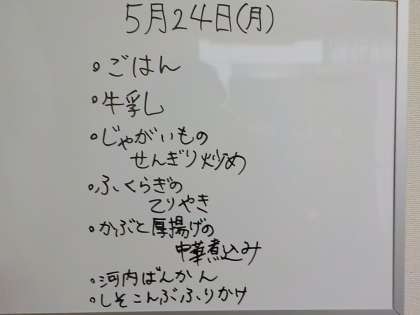 5月24日(月)
。ごはん
。牛乳
。じゃがいもの
せんぎり炒め
。ふくらぎの
てりやき
。かぶと厚揚げの
中華煮込み
。河内ばんかん
。しそこんぶふりかけ